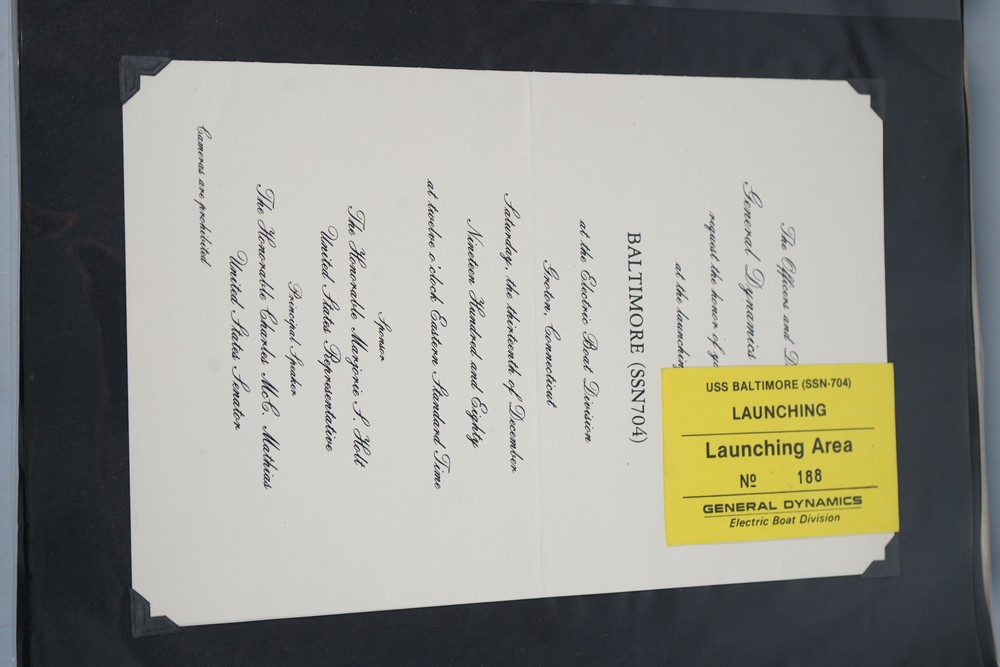 The Officers and D
General Dynamics
request the honor of
at the launching
BALTIMORE (SSN704)
at the Electric Boat Division
Groton, Connecticut
Saturday, the thirteenth of December
Nineteen Hundred and Eighty
at twelve o'clock Eastern Standard Time
Sponsor
The Honorable Marjorie S. Holt
United States Representative
Principal Speaker
The Honorable Charles McC. Mathias
United States Senator
Cameras are prohibited
USS BALTIMORE (SSN-704)
LAUNCHING
Launching Area
Nº 188
GENERAL DYNAMICS
Electric Boat Division